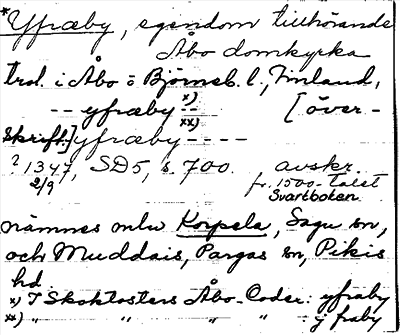 *Yfræby, egendom tillhörande
Åbo domkyrka
trol. i Åbo o Björneb. l., Finland,
-- yfræby x) -- [över-
skrift:] yfræby xx) ----
? 1347, SD5, s. 700. avskr.
2/9 fr. 1500-talet
Svartboken.
nämnes mlw Korpela, Sagu sn,
och Muddais, Pargas sn, Pikis
hd
x) I Skoklosters Åbo-Codex: yfraby
xx) " " " " : yfraby